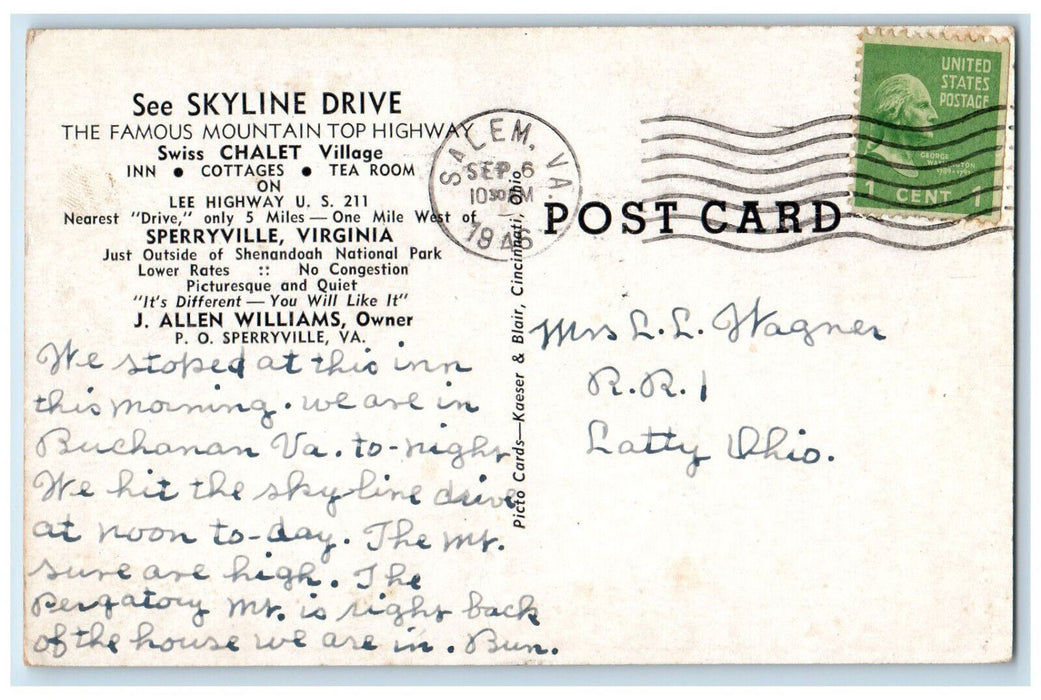 See SKYLINE DRIVE
THE FAMOUS MOUNTAIN TOP HIGHWAY
Swiss CHALET Village
INN • COTTAGES • TEA ROOM
ON
LEE HIGHWAY U. S. 211
Nearest "Drive," only 5 Miles — One Mile West of
SPERRYVILLE, VIRGINIA
Just Outside of Shenandoah National Park
Lower Rates :: No Congestion
Picturesque and Quiet
"It's Different — You Will Like It"
J. ALLEN WILLIAMS, Owner
P. O. SPERRYVILLE, VA.
We stoped at this inn
this morning. we are in
Buchanan Va. to-night
We hit the sky-line drive
at noon to-day. The Mt.
sure are high. The
Pergatory Mt. is right back
of the house we are in. Bun.
Picto Cards—Kaeser & Blair, Cincinnati, Ohio
SALEM, VA.
SEP 6
1030 AM
1946
POST CARD
UNITED
STATES
POSTAGE
GEORGE
WASHINGTON
1789-1797
1 CENT 1
Mrs L.L. Wagner
R.R. 1
Latty Ohio.